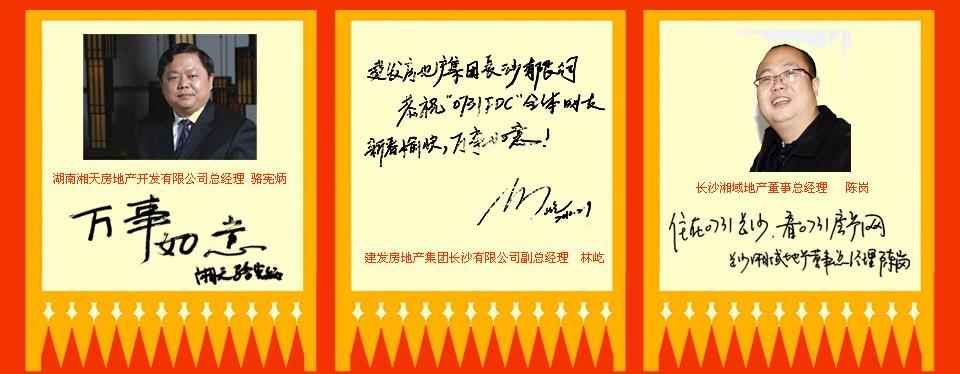 湖南湘天房地产开发有限公司总经理 骆宪炳
万事
如意
湘天骆宪炳
建发房地产集团长沙有限公司
恭祝"0731FDC"全体网友
新春愉快,万事如意!
建发房地产集团长沙有限公司副总经理 林屹
长沙湘域地产董事总经理 陈岗
住在0731长沙.看0731房产网
长沙湘域地产董事总经理陈岗